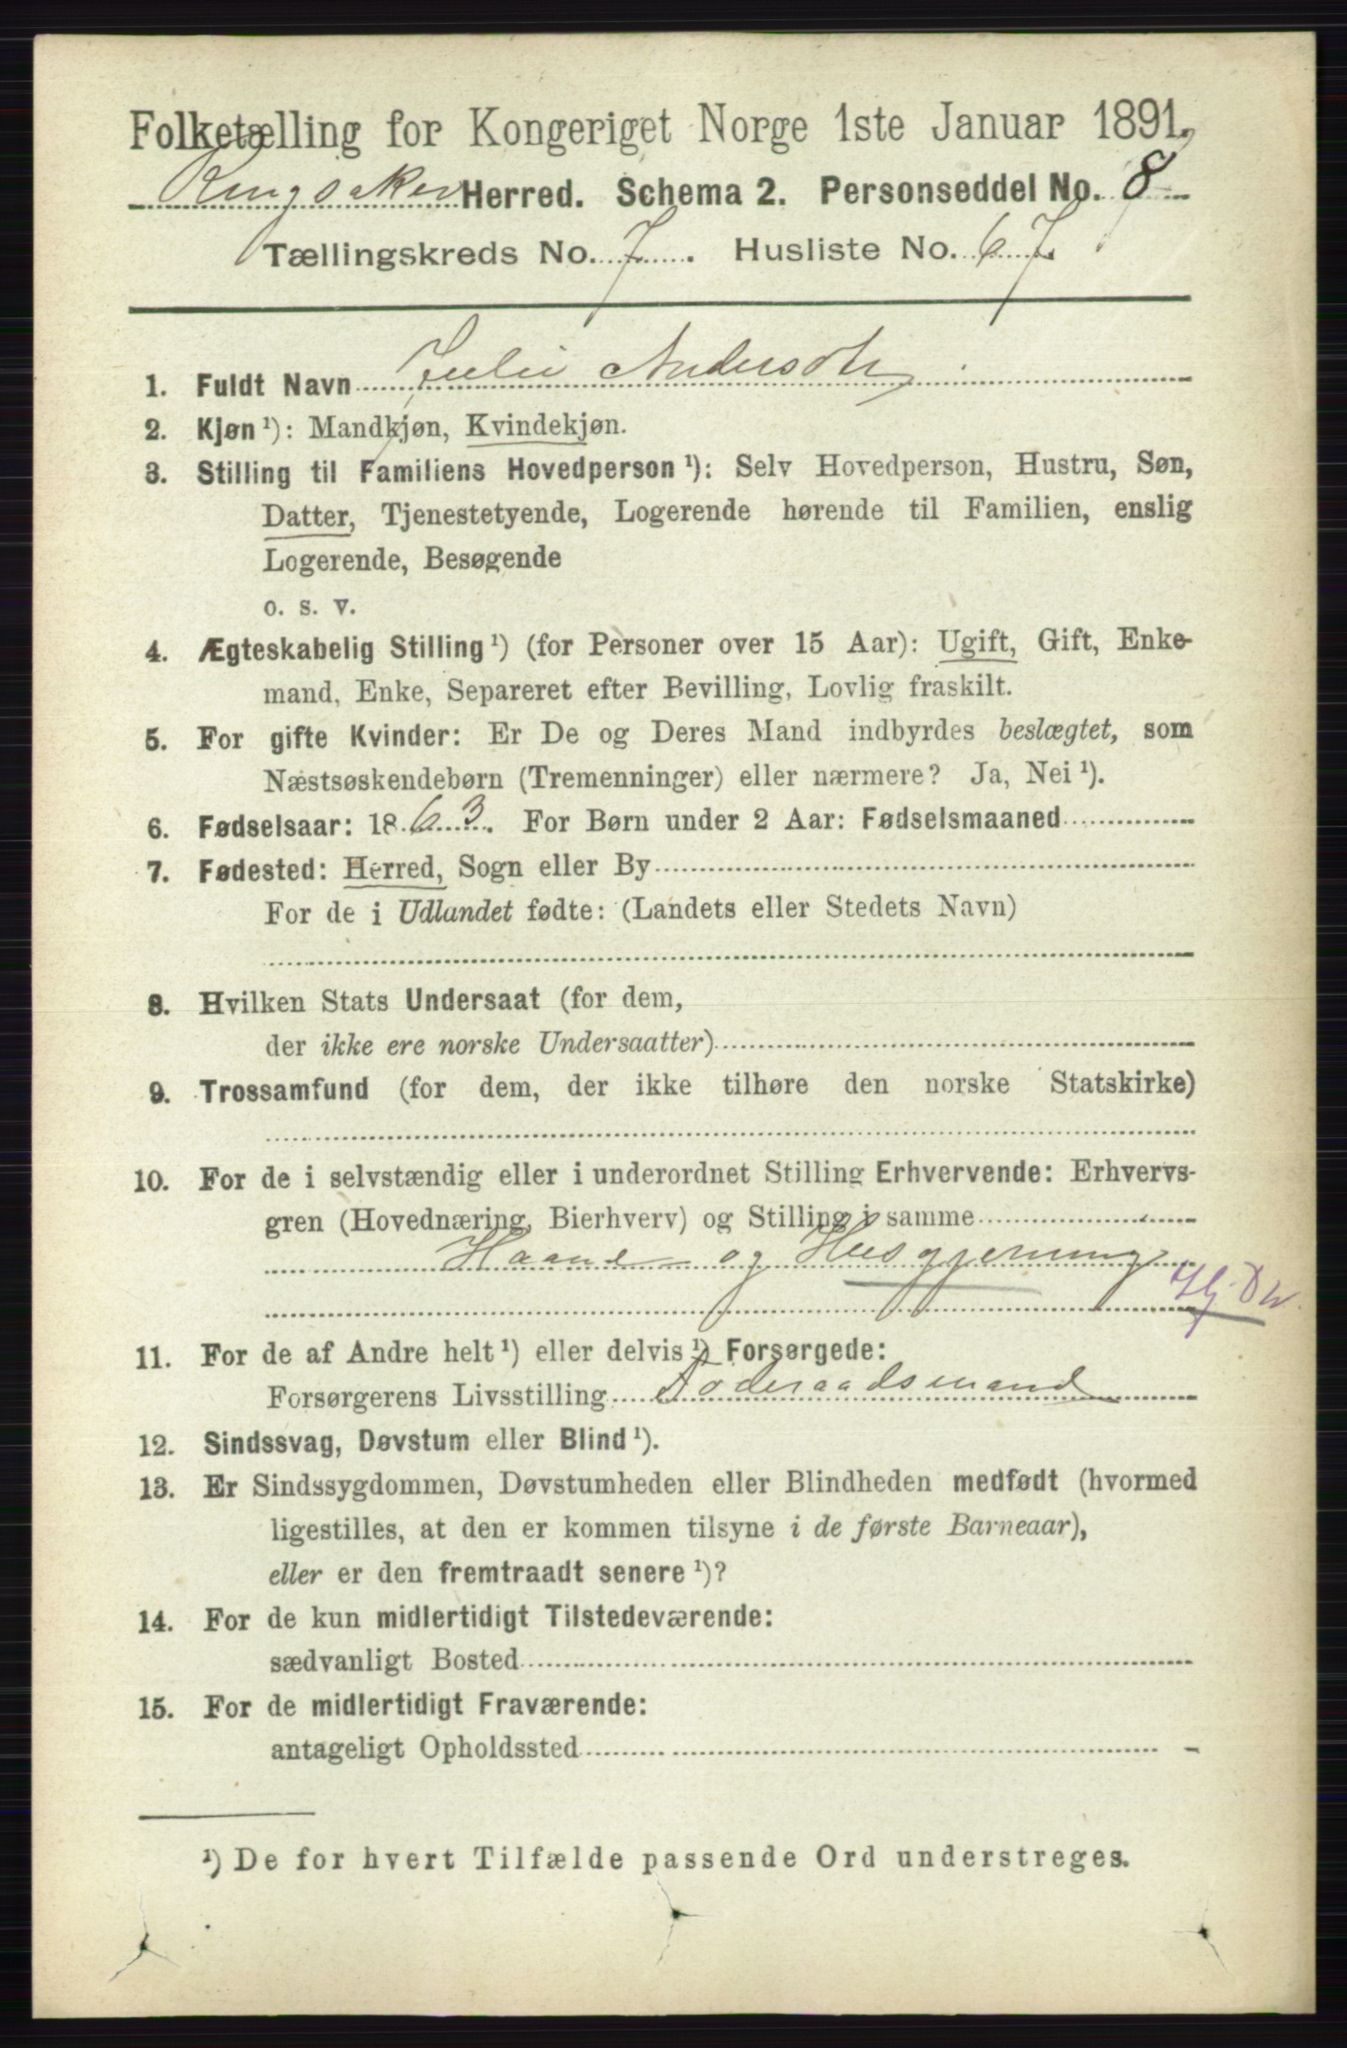 Folketælling for Kongeriget Norge 1ste Januar 1891.
Ringsaker Herred. Schema 2. Personseddel No. 8
Tællingskreds No. 7. Husliste No. 67.
1. Fuldt Navn Julie Andersdtr
2. Kjøn ¹): Mandkjøn, Kvindekjøn.
3. Stilling til Familiens Hovedperson ¹): Selv Hovedperson, Hustru, Søn,
Datter, Tjenestetyende, Logerende hørende til Familien, enslig
Logerende, Besøgende
o. s. v.
4. Ægteskabelig Stilling ¹) (for Personer over 15 Aar): Ugift, Gift, Enke-
mand, Enke, Separeret efter Bevilling, Lovlig fraskilt.
5. For gifte Kvinder: Er De og Deres Mand indbyrdes beslægtet, som
Næstsøskendebørn (Tremenninger) eller nærmere? Ja, Nei ¹).
6. Fødselsaar: 1863. For Børn under 2 Aar: Fødselsmaaned
7. Fødested: Herred, Sogn eller By
For de i Udlandet fødte: (Landets eller Stedets Navn)
8. Hvilken Stats Undersaat (for dem,
der ikke ere norske Undersaatter)
9. Trossamfund (for dem, der ikke tilhøre den norske Statskirke)
10. For de i selvstændig eller i underordnet Stilling Erhvervende: Erhvervs-
gren (Hovednæring, Bierhverv) og Stilling i samme
Haand- og Husgjerning
Hj. Dtr.
11. For de af Andre helt ¹) eller delvis ¹) Forsørgede:
Forsørgerens Livsstilling Føderaadsmand
12. Sindssvag, Døvstum eller Blind ¹).
13. Er Sindssygdommen, Døvstumheden eller Blindheden medfødt (hvormed
ligestilles, at den er kommen tilsyne i de første Barneaar),
eller er den fremtraadt senere ¹)?
14. For de kun midlertidigt Tilstedeværende:
sædvanligt Bosted
15. For de midlertidigt Fraværende:
antageligt Opholdssted
¹) De for hvert Tilfælde passende Ord understreges.